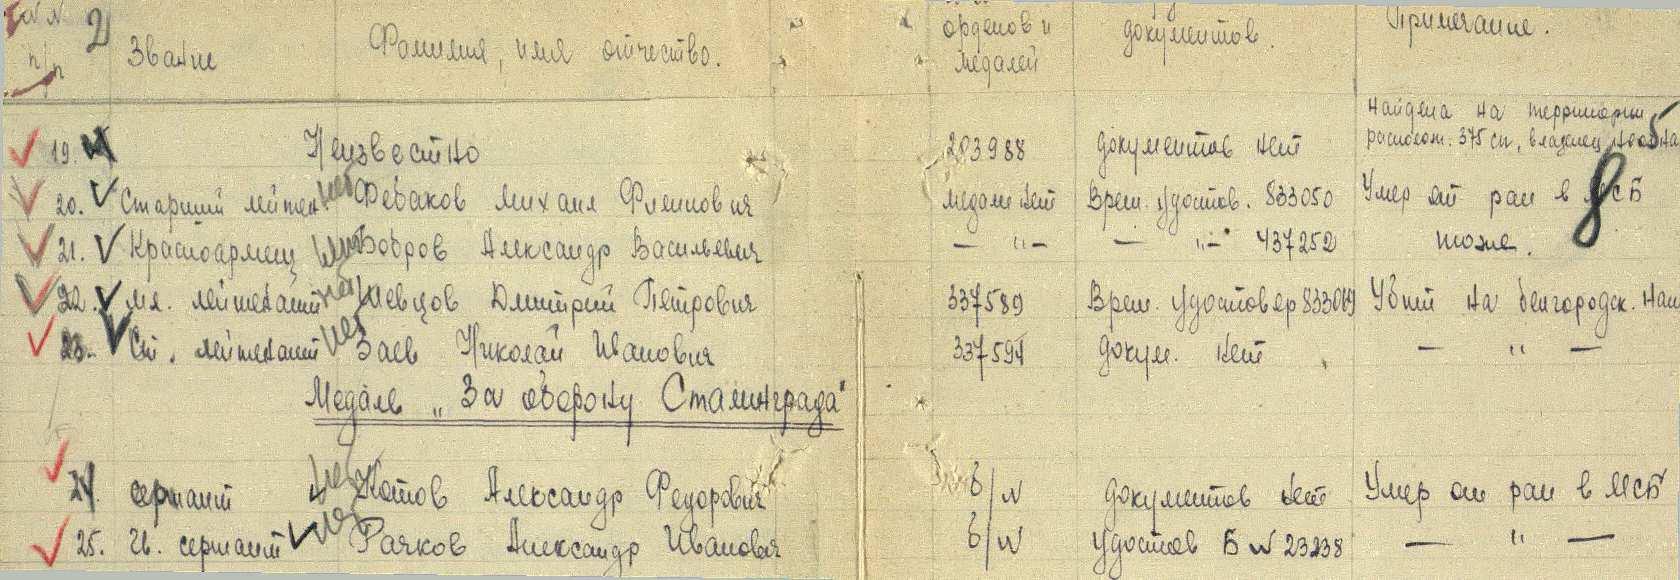 № № п/п 2 Звание Фамилия, имя отчество. орденов и медалей документов. Примечание.
19. Неизвестно 203988 документов нет найдена на территории располож. 375 сп, владелец
20. Старший лейтен. нет Михаил Филипович медали нет Врем. удостов. 833050 Умер от ран в МСБ 8
21. Красноармеец нет Бобров Александр Васильевич — " — — " — 437252 тоже.
22. Мл. лейтенант нет Шевцов Дмитрий Петрович 337589 Врем. удостовер Убит на белгородск. нап
23. Ст. лейтенант нет Заев Николай Иванович 337594 докум. нет — " —
Медаль „За оборону Сталинграда"
24. сержант нет Котов Александр Федорович б/№ документов нет Умер от ран в МСБ
25. Гв. сержант нет Рачков Александр Иванович б/№ удостов Б № 23238 — " —